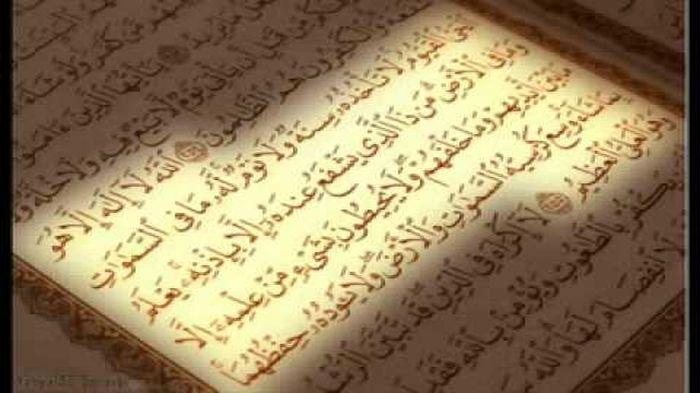 يَـٰٓأَيُّهَا ٱلَّذِينَ ءَامَنُوٓا۟
أَن يَأْتِىَ يَوْمٌ لَّا بَيْعٌ فِيهِ وَلَا خُلَّةٌ
وَٱلْكَـٰفِرُونَ هُمُ ٱلظَّـٰلِمُونَ ٢٥٤ ٱللَّهُ لَآ إِلَـٰهَ إِلَّا هُوَ
ٱلْحَىُّ ٱلْقَيُّومُ لَا تَأْخُذُهُۥ سِنَةٌ وَلَا نَوْمٌ لَّهُۥ مَا فِى ٱلسَّمَـٰوَٰتِ
وَمَا فِى ٱلْأَرْضِ مَن ذَا ٱلَّذِى يَشْفَعُ عِندَهُۥٓ إِلَّا بِإِذْنِهِۦ يَعْلَمُ
مَا بَيْنَ أَيْدِيهِمْ وَمَا خَلْفَهُمْ وَلَا يُحِيطُونَ بِشَىْءٍ مِّنْ عِلْمِهِۦٓ إِلَّا
بِمَا شَآءَ وَسِعَ كُرْسِيُّهُ ٱلسَّمَـٰوَٰتِ وَٱلْأَرْضَ وَلَا يَـُٔودُهُۥ حِفْظُهُمَا
وَهُوَ ٱلْعَلِىُّ ٱلْعَظِيمُ ٢٥٥ لَآ إِكْرَاهَ فِى ٱلدِّينِ قَد تَّبَيَّنَ ٱلرُّشْدُ
يَكْفُرْ بِٱلطَّـٰغُوتِ وَيُؤْمِن بِٱللَّهِ فَقَدِ
لَا ٱنفِصَامَ لَهَا وَٱللَّهُ